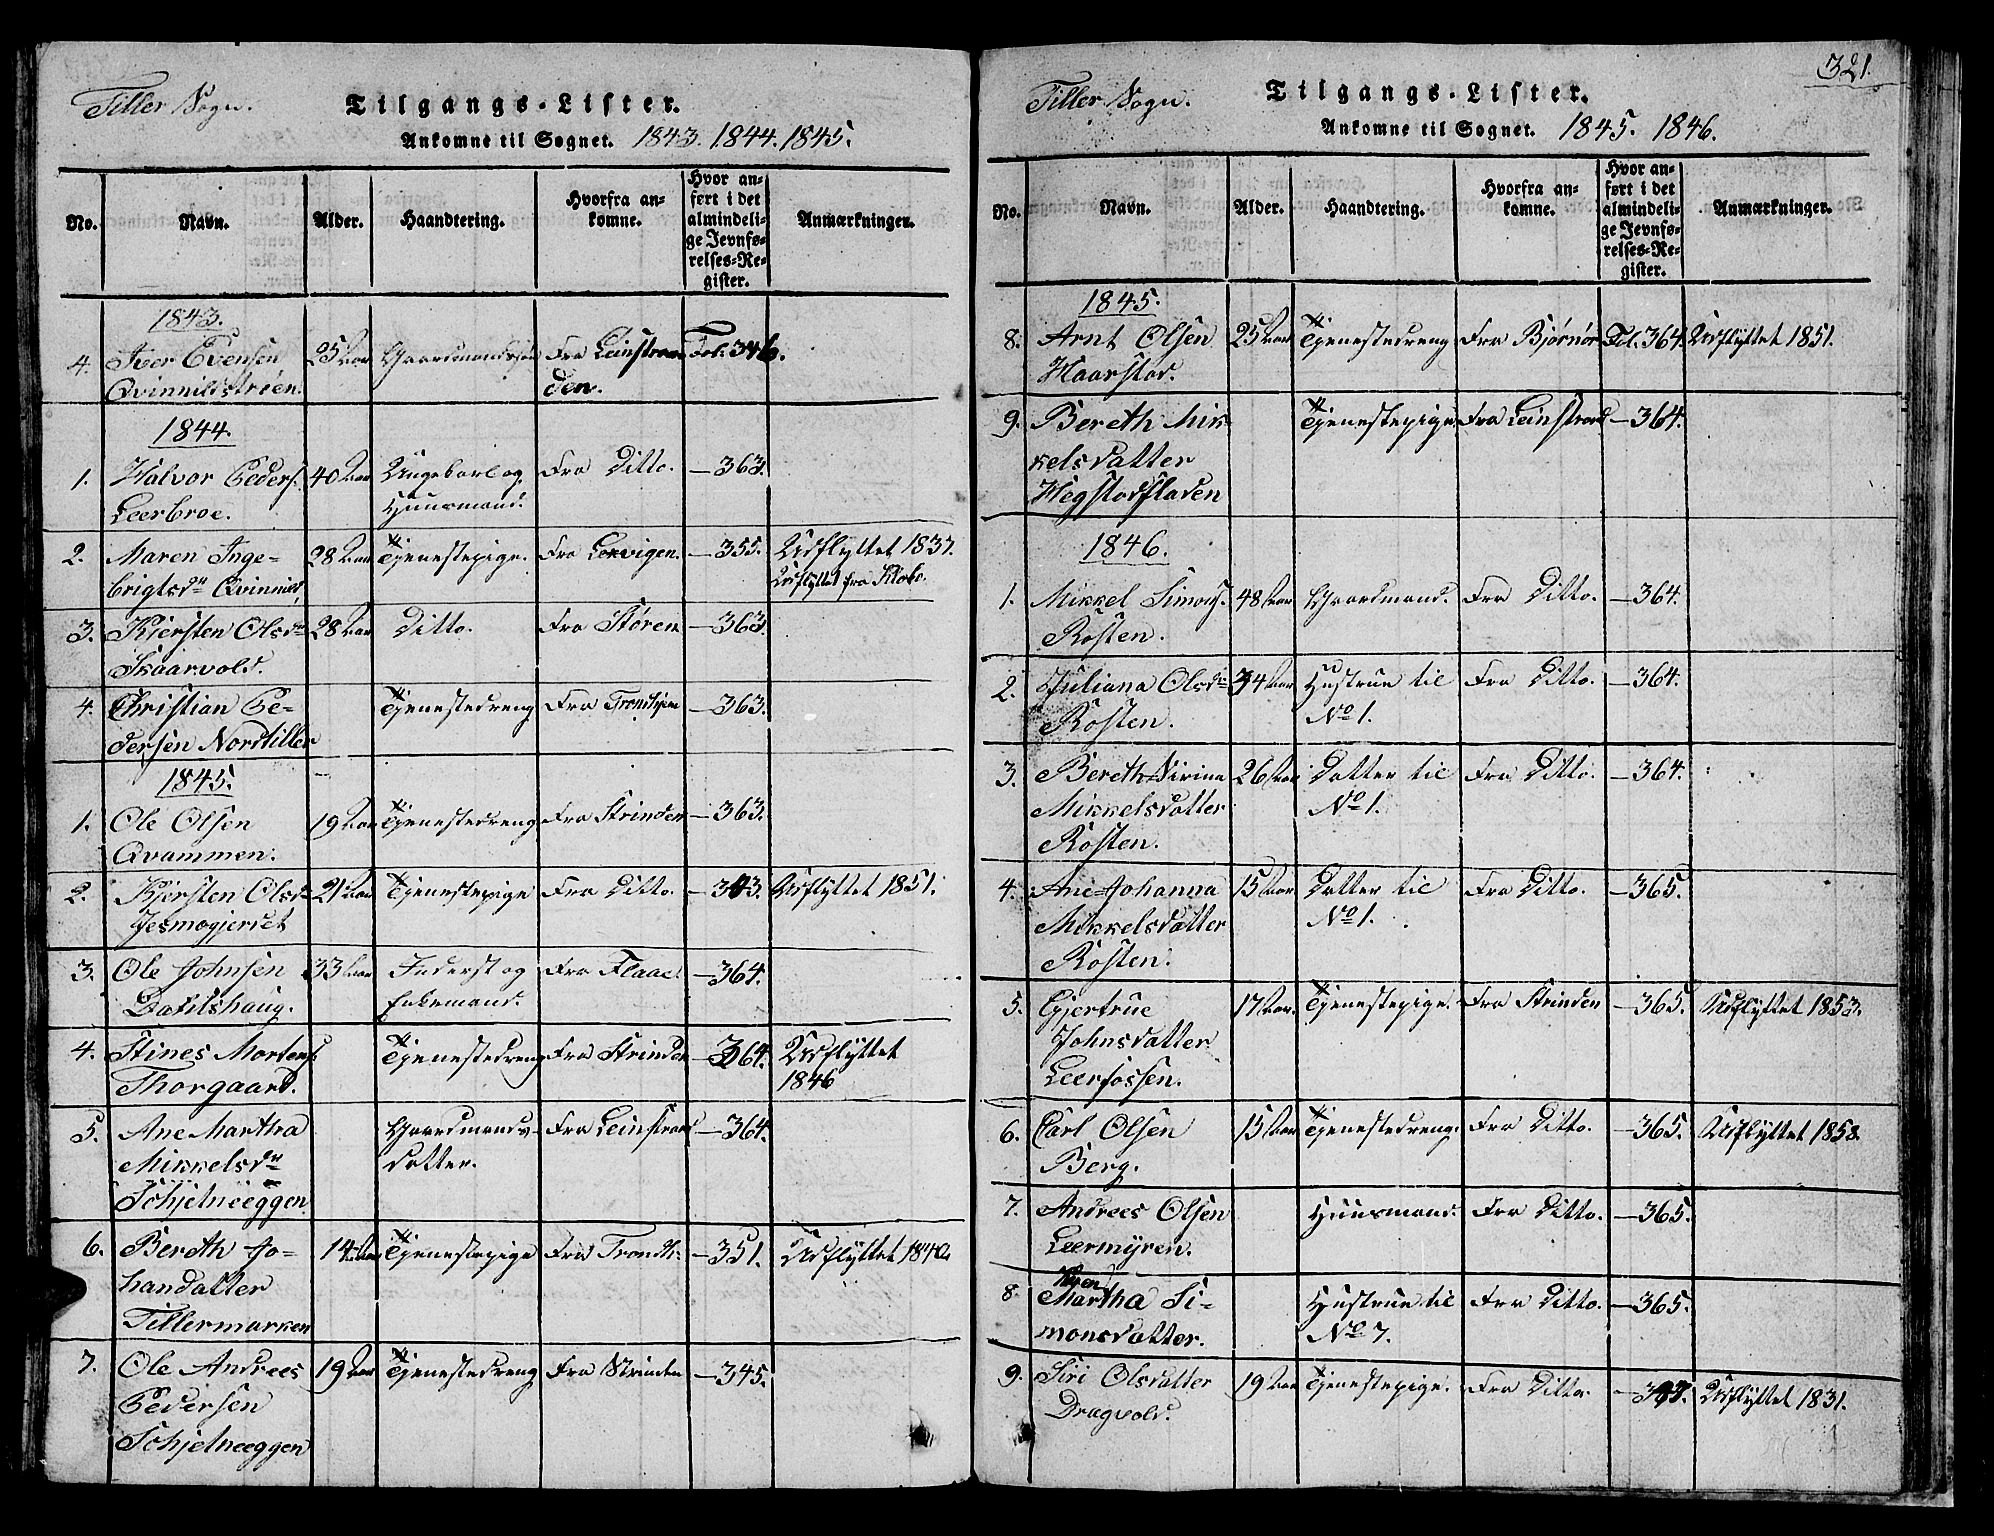 Tiller Sogn.
Tilgangs-Lister.
Ankomne til Sognet. 1843. 1844. 1845.
No. Navn. Alder. Haandtering. Hvorfra ankomne. Hvor anført i det almindelige Jevnførelses-Register. Anmærkninger.
1843.
4. Iver Evensen 25 Aar Gaardmandssøn Fra Leinstran Fol. 346.
Qvinnildstrøen. den.
1844.
1. Halvor Peders. 40 Aar Ungekarl og Fra Ditto. —363.
Leerbroe. Huusmand.
2. Maren Inge- 28 Aar Tjenestepige. Fra Lexvigen. —355. Udflyttet 1837.
brigtsdr Qvinnild Udflyttet fra Klæbo.
3. Kjersten Olsdr 28 Aar Ditto. Fra Støren —363.
Skaarvold.
4. Christian Pe- Tjenestedreng Fra Trondhjem —363.
dersen Nordtiller
1845.
1. Ole Olsen 19 Aar Tjenestedreng Fra Strinden —363.
Qvammen.
2. Kjersten Olsdr 21 Aar Tjenestepige Fra Ditto. —343. Udflyttet 1851.
Jesmogjerdet
3. Ole Johnsen 33 Aar Inderst og Fra Flaae —364.
Dahlshaug. Enkemand.
4. Stines Mortens. Tjenestedreng Fra Strinden —364. Udflyttet
Thorgaard. 1846
5. Ane Martha Gaardmands- Fra Leinstrand —364.
Mikkelsdr datter.
Schjelneeggen.
6. Bereth Jo- 14 Aar Tjenestepige Fra Trondh: —351. Udflyttet
handatter
Tillermarken
7. Ole Andrees 19 Aar Tjenestedreng Fra Strinden —345.
Pedersen
Schjelneeggen
321.
Tiller Sogn.
Tilgangs-Lister.
Ankomne til Sognet. 1845. 1846.
No. Navn. Alder. Haandtering. Hvorfra ankomne. Hvor anført i det almindelige Jevnførelses-Register. Anmærkninger.
1845.
8. Arnt Olsen 25 Aar Tjenestedreng Fra Bjørnør Fol. 364. Udflyttet 1851.
Haarstad.
9. Bereth Mik- Tjenestepige. Fra Leinstrand —364.
kelsdatter
Hegstadfladen
1846.
1. Mikkel Simons. 48 Aar Gaardmand. Fra Ditto. —364.
Rosten.
2. Juliana Olsdr 34 Aar Hustrue til Fra Ditto. —364.
Rosten. No 1.
3. Bereth Sirina 26 Aar Datter til Fra Ditto. —364.
Mikkelsdatter No 1.
Rosten.
4. Ane Johanna 15 Aar Datter til Fra Ditto. —365.
Mikkelsdatter No 1.
Rosten.
5. Gjertrue 17 Aar. Tjenestepige. Fra Strinden —365. Udflyttet 1853.
Johnsdatter
Leerfossen.
6. Carl Olsen 15 Aar Tjenestedreng. Fra Ditto. —365. Udflyttet 1858.
Berg.
7. Andrees Olsen Huusmand. Fra Ditto. —365.
Leermyren.
Karen
8. Martha Si- Hustrue til Fra Ditto. —365.
monsdatter. No 7.
9. Siri Olsdatter 19 Aar Tjenestepige. Fra Ditto. Udflyttet 1831.
Dragvold.